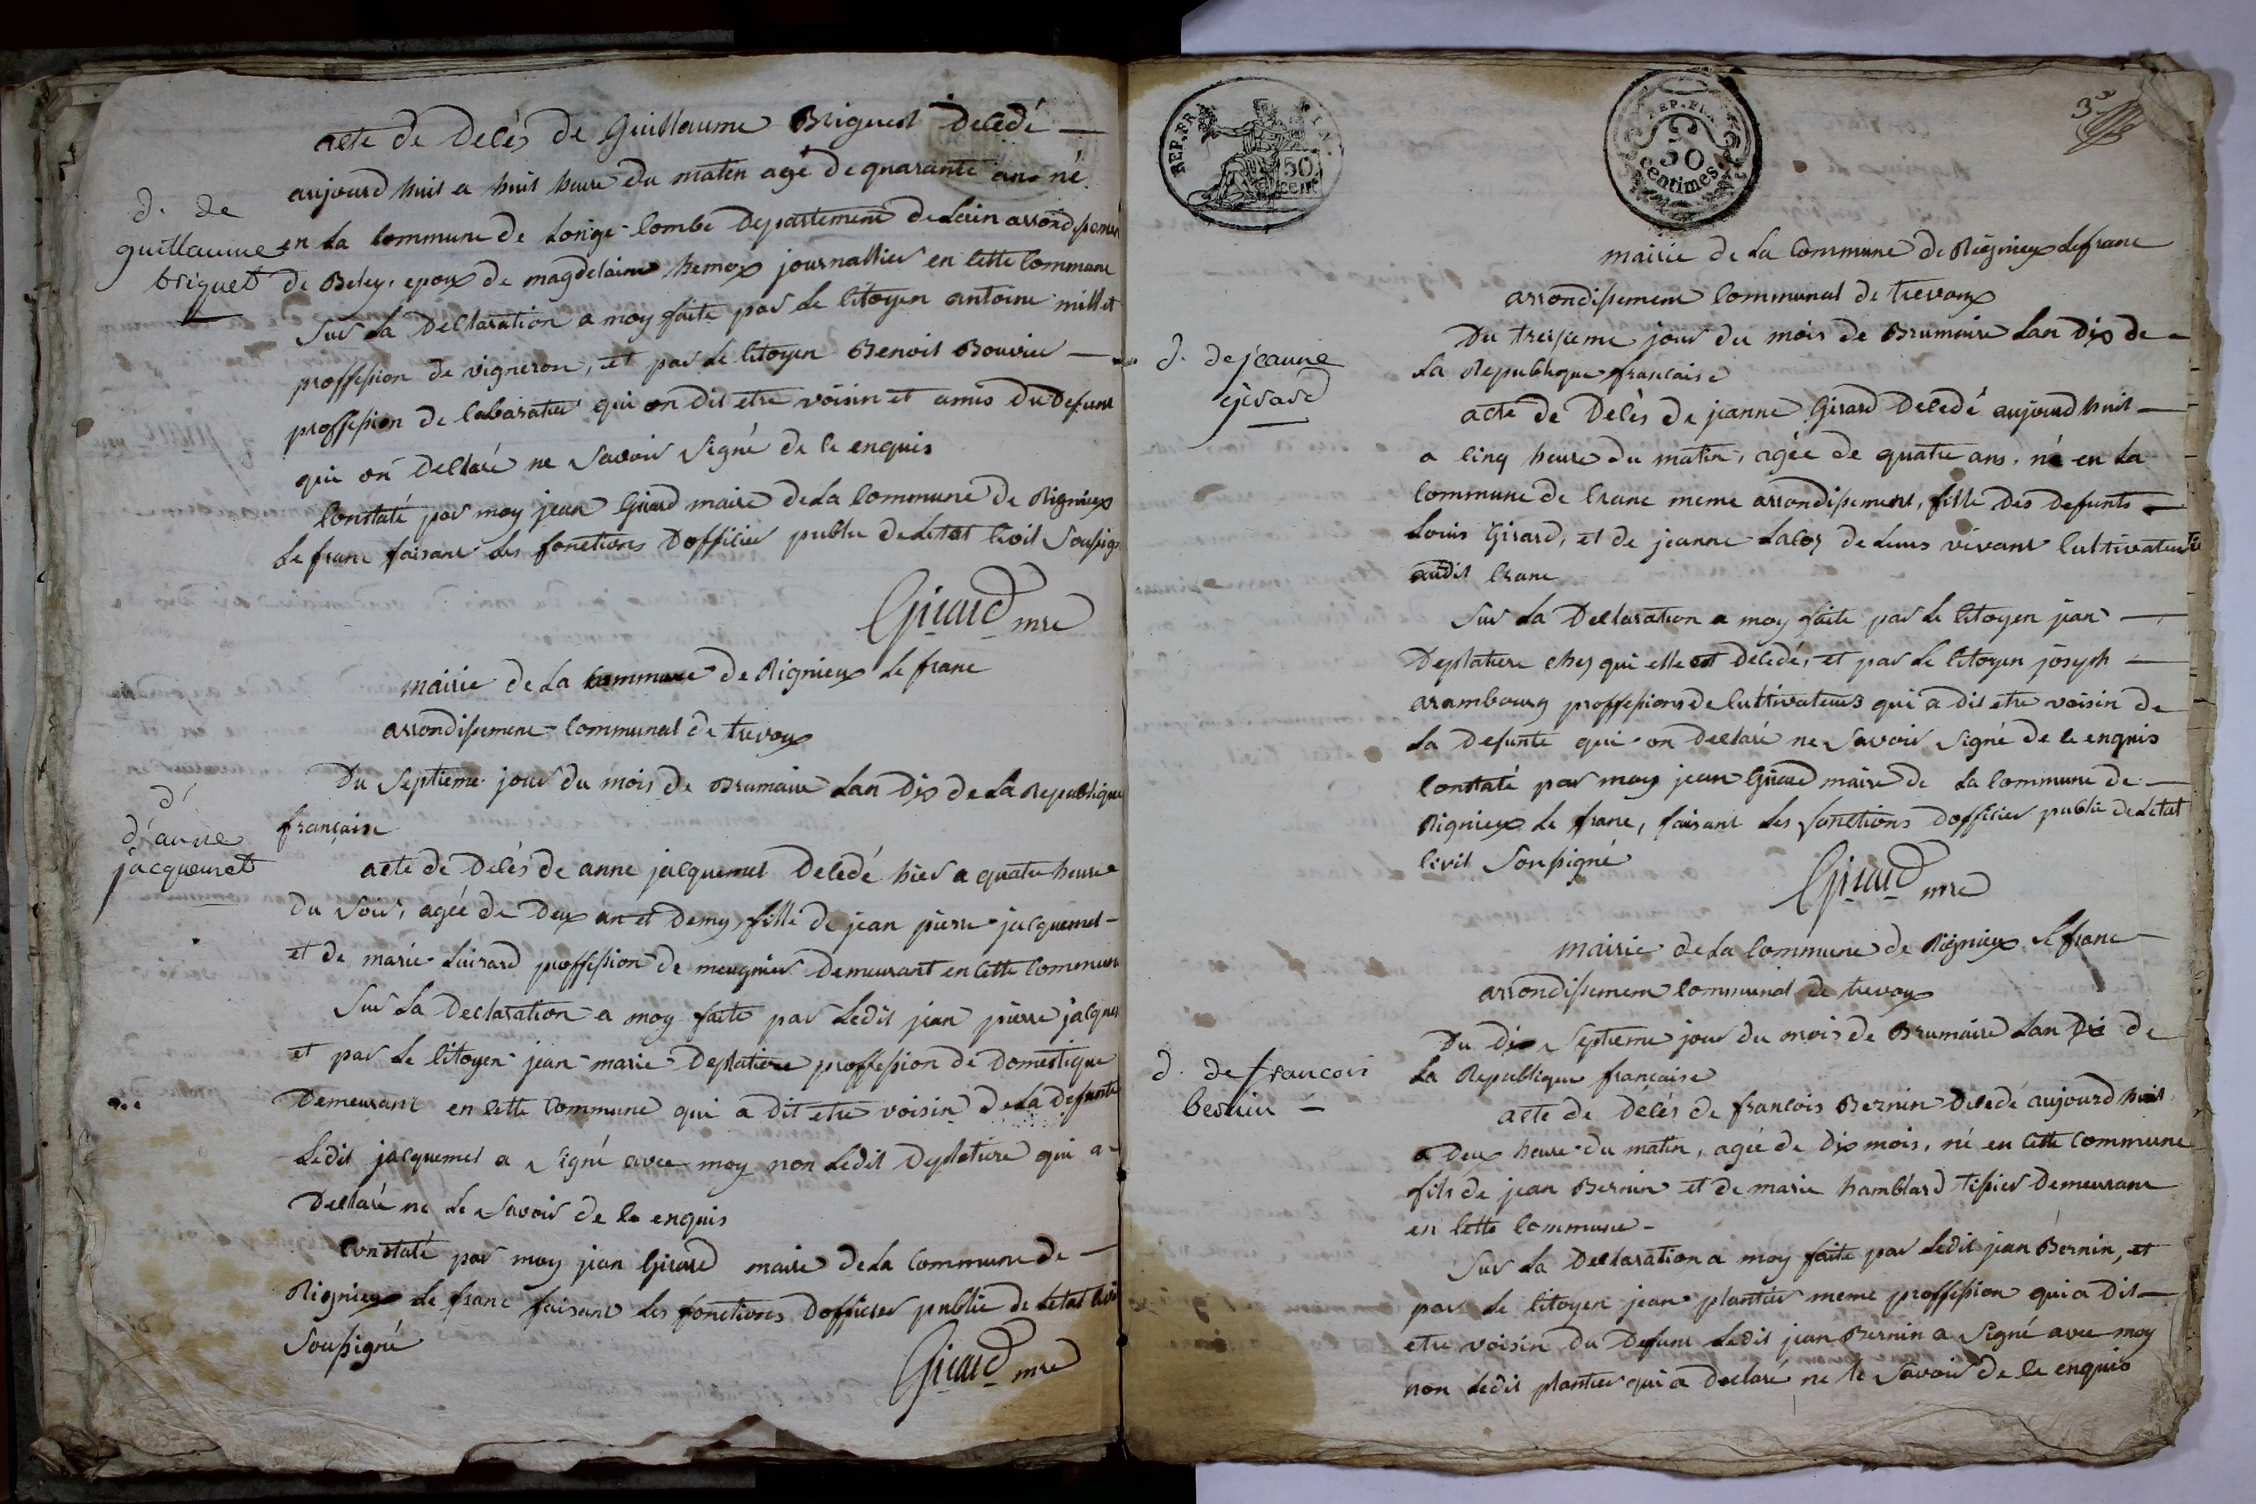 acte de Decès de Guillaume Briguet Decedé —
aujourd huit a huit heure du matin agé de quarante ans né
d. de
guillaume
briguet
en la commune de Longe-Combe Departement de Lain arrondissement
de Beley, epoux de magdelaine hemox journallier en cette Commune
Sur La Declaration a moy faite par Le Citoyen antoine millet
proffession de vigneron, et par Le Citoyen Benoit Bouvier —
proffession de Cabaratier qui on dit etre voisin et amis du Defunt
qui on Declaré ne Savoir Signé de ce enquis
Constaté par moy jean Girard maire de La Commune de Rignieux
Le franc faisant Les fonctions Dofficier public de Letat Civil Soussig
Girard mre
mairie de La commune de Rignieux Le franc
arrondissement Communal de trevoux
Du Septieme jour du mois de Brumaire Lan Dix de La Republique
française
d'
d'anne
jacquemet
acte de Decès de anne jacquemet Decedé hier a quatre heure
du Soir, agée de Deux an et Demy, fille de jean pierre jacquemet
et de marie Luirard proffession de meugnier Demeurant en Cette Commune
Sur La Declaration a moy faite par Ledit jean pierre jacquem
et par Le Citoyen jean marie Deplatiere proffession de Domestique
Demeurant en Cette Commune qui a Dit etre voisin de La Defunte
Ledit jacquemet a Signé avec moy non Ledit Deplatiere qui a
Declaré ne Le Savoir de ce enquis
Constaté par moy jean Girard maire de La Commune de —
Rignieux Le franc faisant Les fonctions Dofficier public de Letat Civi
Soussigné
Girard mre
REP. FRA
50 CENT
REP. FRA
50
centimes
3e
mairie de La Commune de Rignieux Lefranc
arrondissement Communal de trevoux
Du treisieme jour du mois de Brumaire Lan Dix de —
La Republique française
d. de jeanne
girard
acte de Decès de jeanne Girard Decedé aujourd huit —
a Cinq heure du matin, agée de quatre ans, né en La
Commune de Crane meme arrondissement, fille Des Defunts —
Louis Girard, et de jeanne Lacoz de Leurs vivant Cultivateurs
audit Crane
Sur La Declaration a moy faite par Le Citoyen jean —
Deplatiere chez qui elle est Decedé, et par Le Citoyen joseph —
arambourg proffessions de Cultivateurs qui a dit etre voisin de
La Defunte qui on Declaré ne Savoir Signé de ce enquis
Constaté par moy jean Girard maire de La Commune de —
Rignieux Le franc, faisant Les fonctions Dofficier public de Letat
Civil Soussigné
Girard mre
mairie de La Commune de Rignieux Le franc
arrondissement Communal de trevoux
Du Dix Septieme jour du mois de Brumaire Lan Dix de
La Republique française
d. de francois
bernin —
acte de Décès de francois Bernin Decedé aujourd huit
a Deux heure du matin, agée de Dix mois, né en Cette Commune
fils de jean Bernin et de marie hamblard tissier Demeurant
en Cette Commune —
Sur La Declaration a moy faite par Ledit jean Bernin, et
par Le Citoyen jean plantier meme proffession qui a Dit —
etre voisin du Defunt Ledit jean Bernin a Signé avec moy
non Ledit plantier qui a Declaré ne Le Savoir de ce enquis